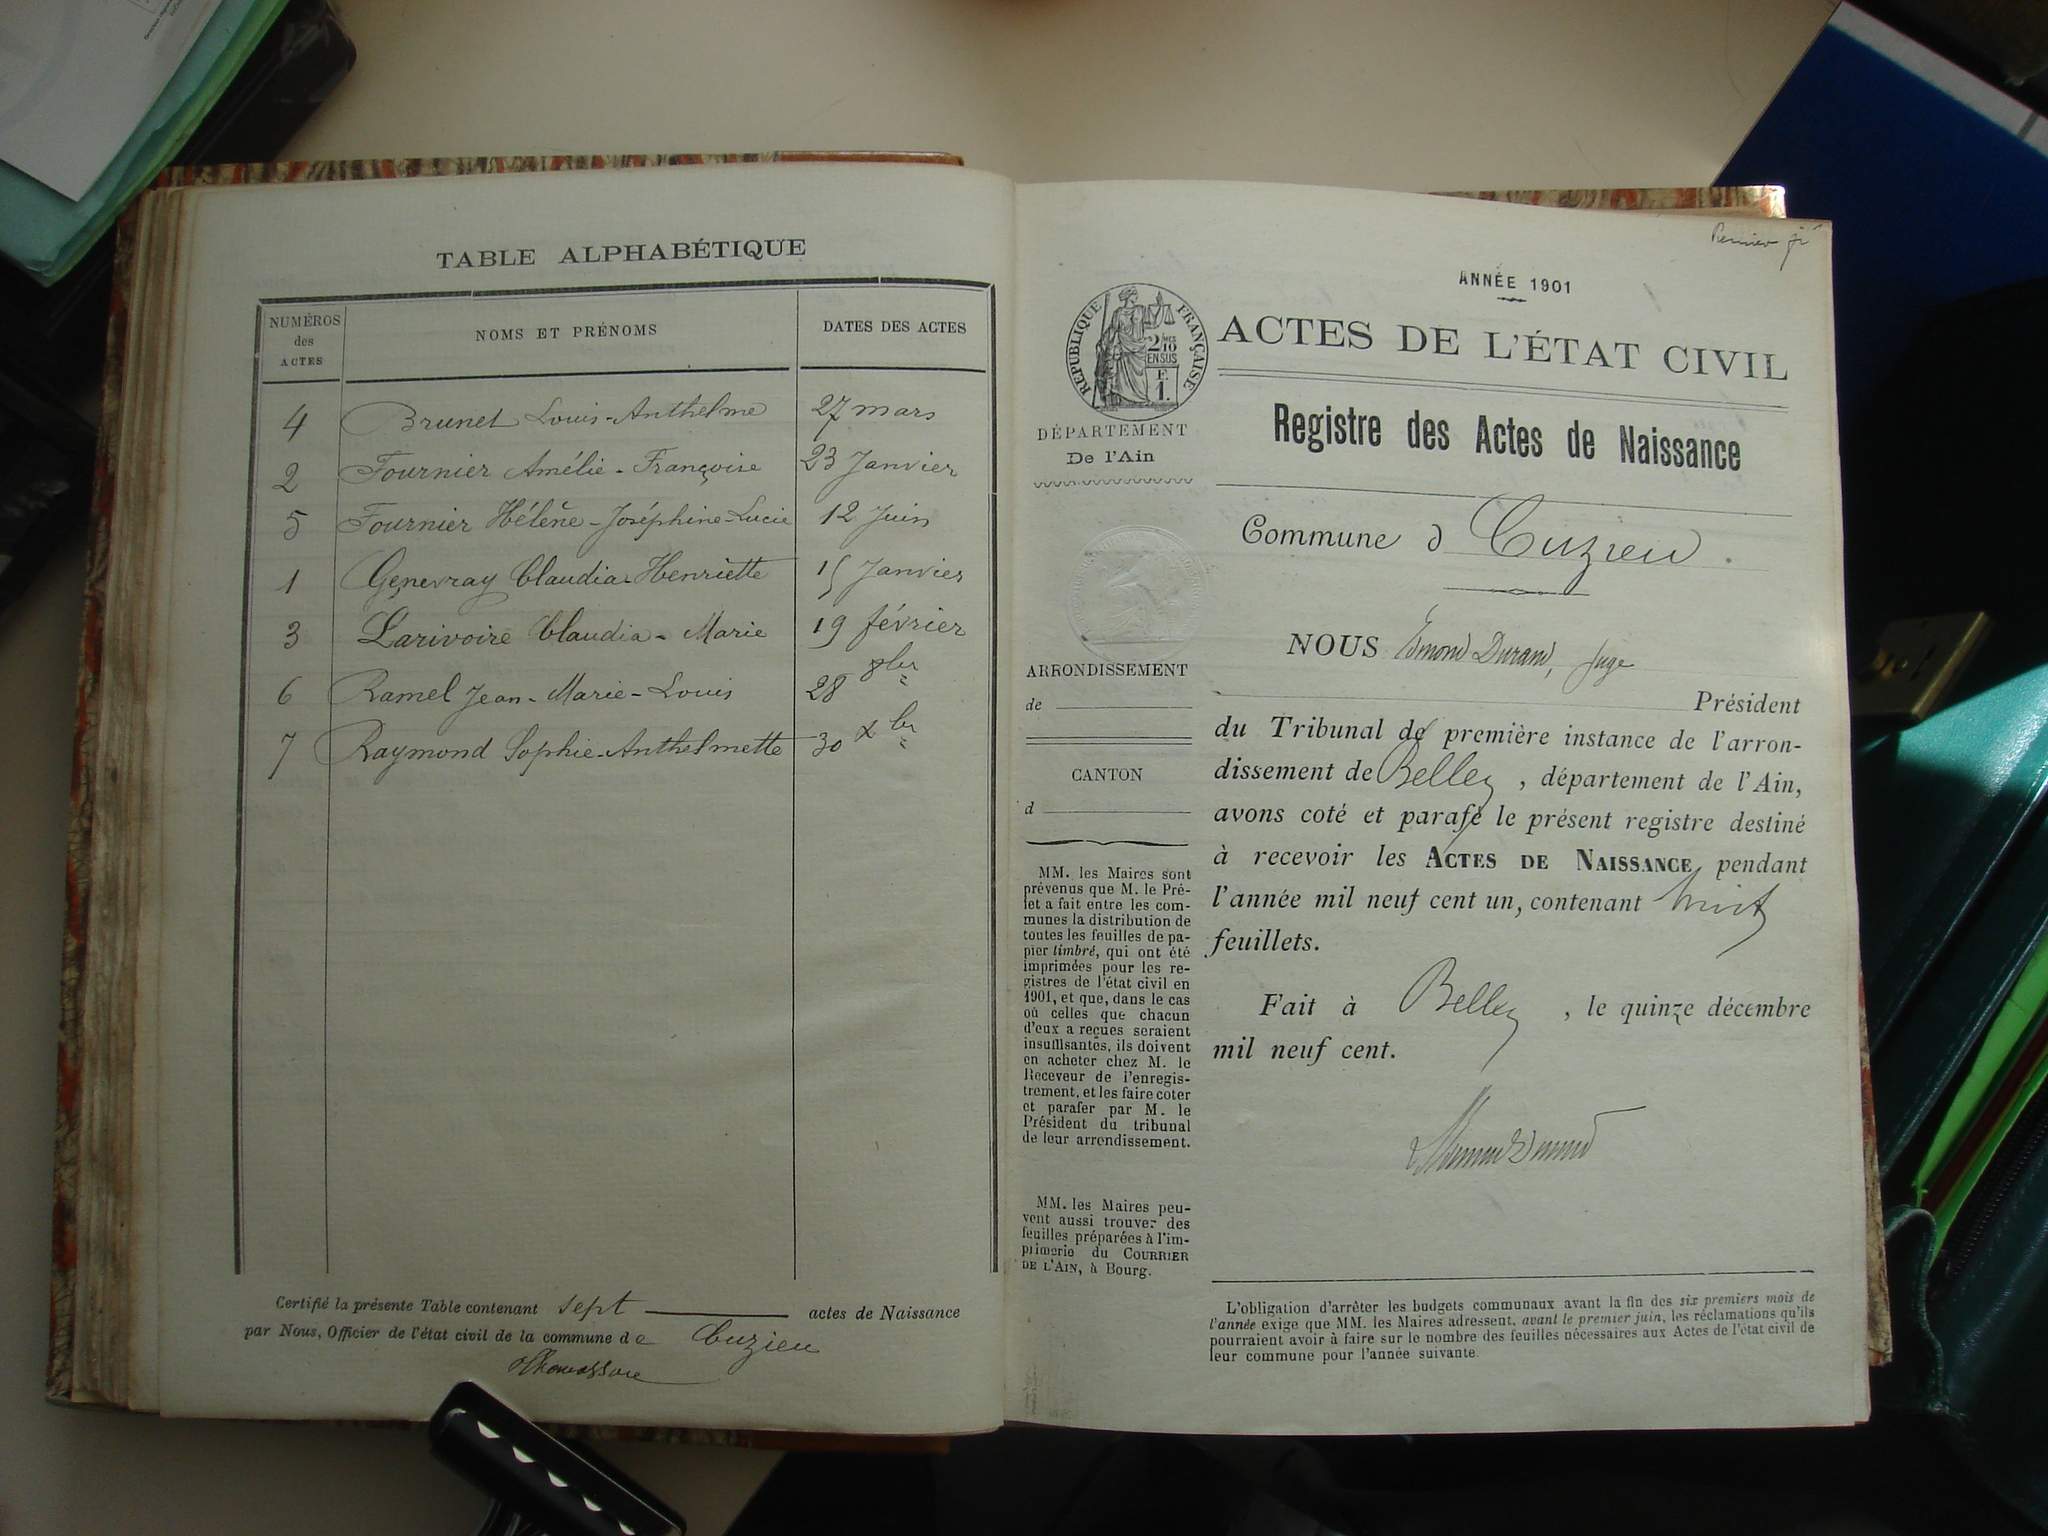 TABLE ALPHABÉTIQUE
NUMÉROS des ACTES NOMS ET PRÉNOMS DATES DES ACTES
4 Brunet Louis-Anthelme 27 mars
2 Fournier Amélie-Françoise 23 Janvier
5 Fournier Hélène-Joséphine-Lucie 12 Juin
1 Genevray Claudia-Henriette 15 Janvier
3 Larivoire Claudia-Marie 19 février
6 Ramel Jean-Marie-Louis 28 8bre
7 Raymond Sophie-Anthelmette 30 Xbre
Certifié la présente Table contenant sept actes de Naissance
par Nous, Officier de l'état civil de la commune de Cuzieu
Premier
ANNÉE 1901
ACTES DE L'ÉTAT CIVIL
RÉPUBLIQUE FRANÇAISE
2/10 EN SUS
F. 1.
DÉPARTEMENT
De l'Ain
Registre des Actes de Naissance
Commune d Cuzieu.
ARRONDISSEMENT
de
CANTON
d
MM. les Maires sont
prévenus que M. le Pré-
fet a fait entre les com-
munes la distribution de
toutes les feuilles de pa-
pier timbré, qui ont été
imprimées pour les re-
gistres de l'état civil en
1901, et que, dans le cas
où celles que chacun
d'eux a reçues seraient
insuffisantes, ils doivent
en acheter chez M. le
Receveur de l'enregis-
trement, et les faire coter
et parafer par M. le
Président du tribunal
de leur arrondissement.
MM. les Maires peu-
vent aussi trouver des
feuilles préparées à l'im-
primerie du COURRIER
DE L'AIN, à Bourg.
NOUS Edmond Durand, Juge
Président
du Tribunal de première instance de l'arron-
dissement de Belley, département de l'Ain,
avons coté et parafé le présent registre destiné
à recevoir les ACTES DE NAISSANCE pendant
l'année mil neuf cent un, contenant huit
feuillets.
Fait à Belley, le quinze décembre
mil neuf cent.
L'obligation d'arrêter les budgets communaux avant la fin des six premiers mois de
l'année exige que MM. les Maires adressent, avant le premier juin, les réclamations qu'ils
pourraient avoir à faire sur le nombre des feuilles nécessaires aux Actes de l'état civil de
leur commune pour l'année suivante.